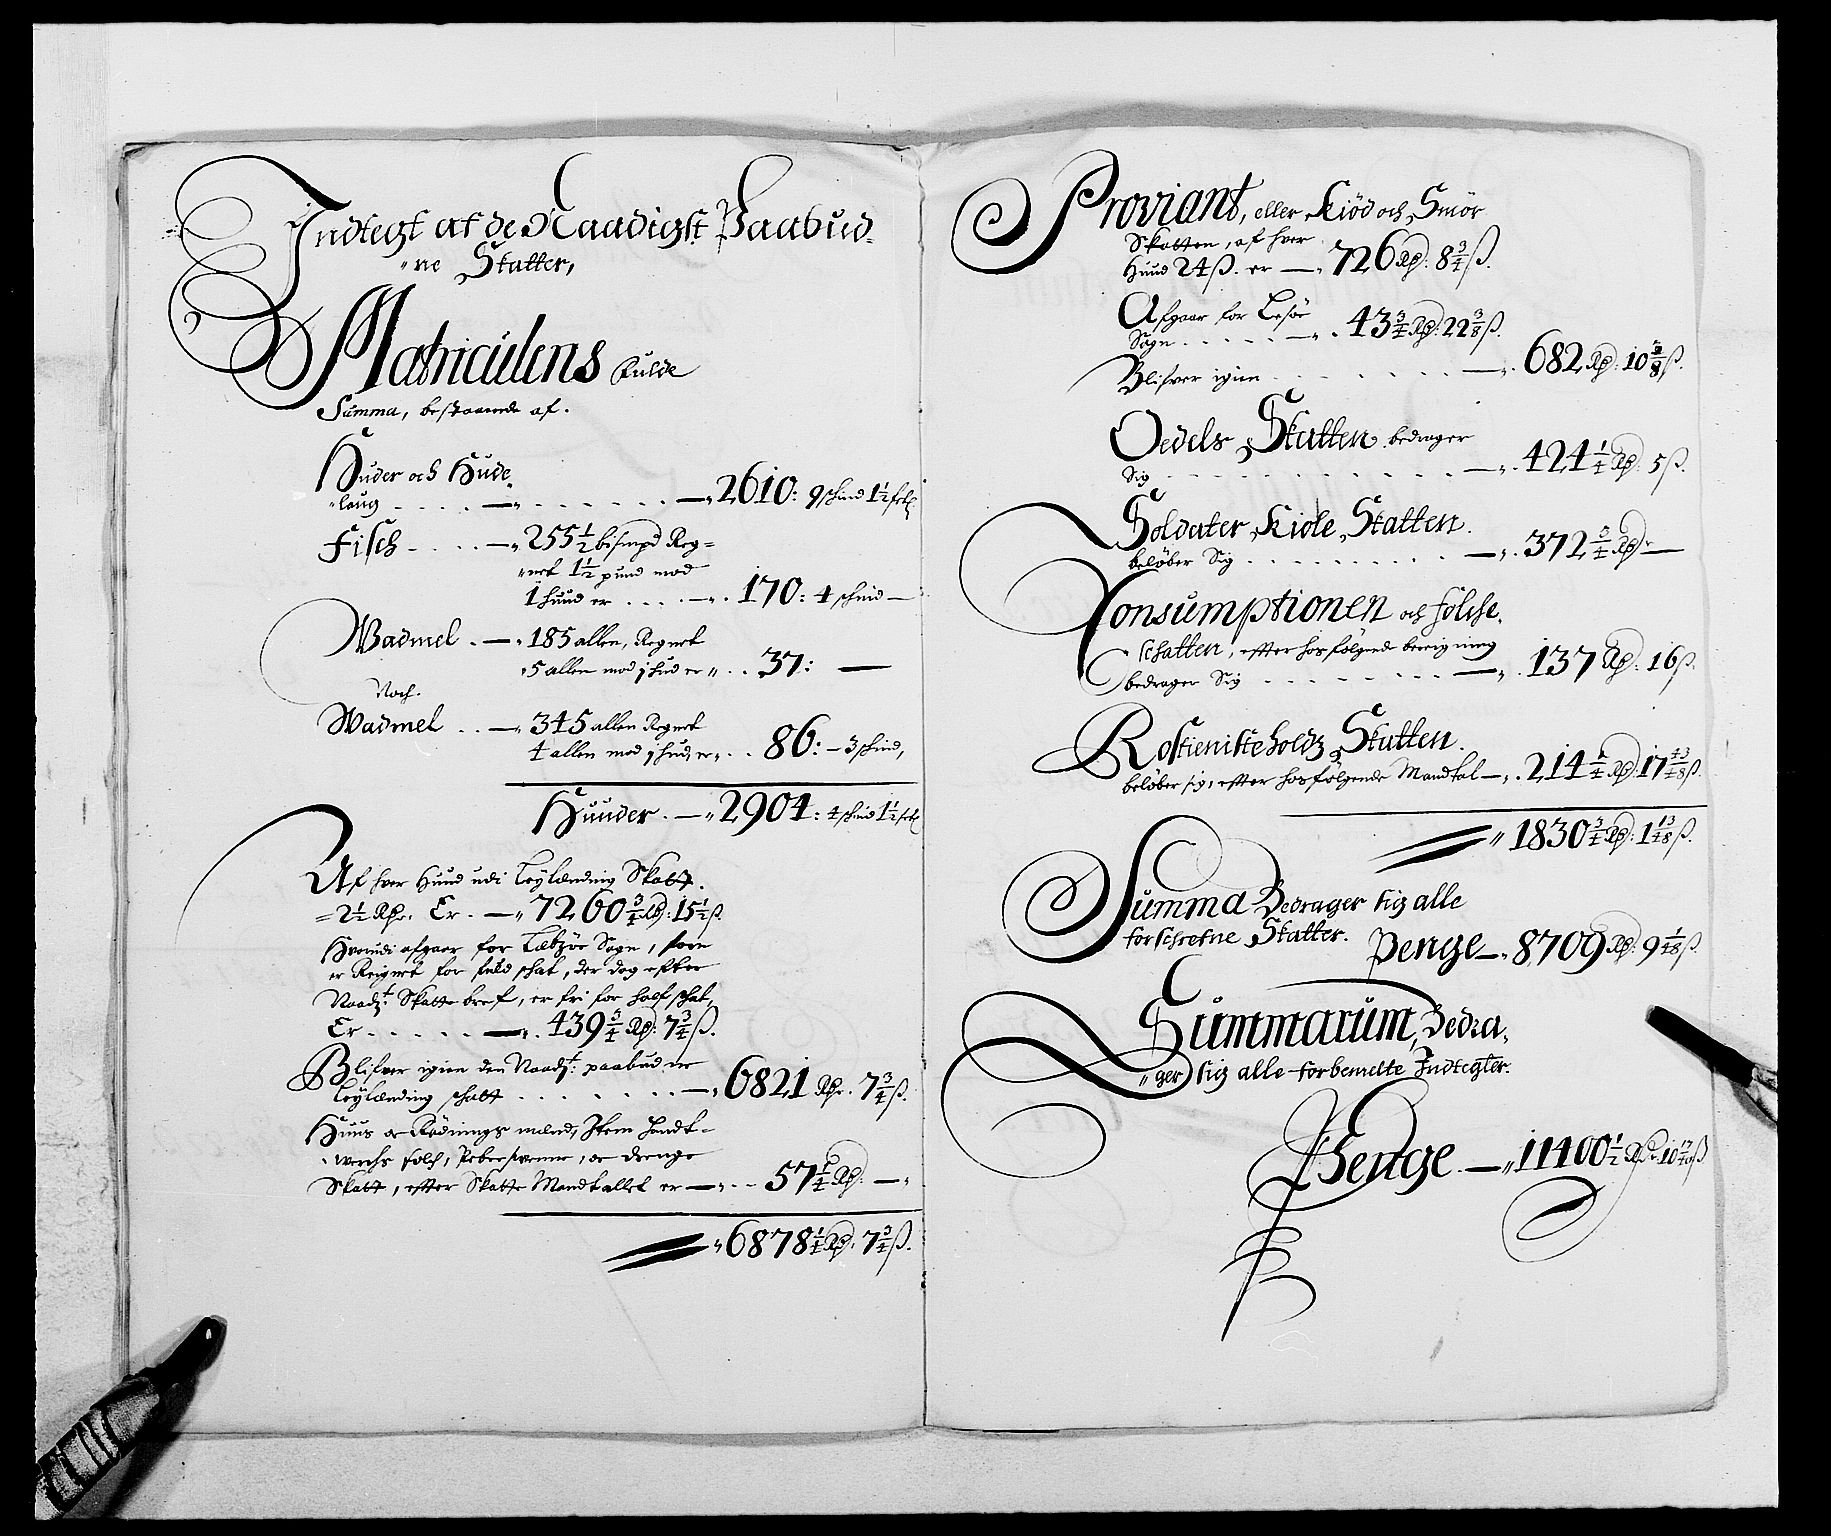 Indtegt af de Naadigst Paabud-
"ne Skatter,
Matriculens fulde
Summa, bestaaende af.
Huder och Hude,
"laug . . . . — " . . . . . . — " 2610: 9 schind 1½
Fisch . . . . — " 255½ bismpd Reg=
"net 1½ pund mod
1 huud er . . . . — " . 170: 4 schind —
Wadmel . — " 185 allen, Regnet
"5 allen mod j hud er " . . 37: —
Noch.
Wadmel . . — " 345 allen Regnet
4 allen mod j hud, er " . . 86: — 3 schind,
Huuder . — " 2904: 4 schind 1½
Af hver Huud udi Leylænding Skatt.
=2½ Rdr. Er . — " 7260¾ Rd: 15½ ß.
Hvorudi afgaar for Sogn, som
er Reignet for fuld schat, der dog efter
Naadt: Skatte bref, er fri for half schat,
Er . . . . . — " . 439¾ Rd: 7¾ ß.
Blifver igien den Naadt: paabudne
Leylænding schatt . . . . . . . . — " 6821 Rdr. 7¾ ß.
Huus och Rødnings mænd, Item Handt-
"werchs folch, Pebersvenne, och drenge
Skatt, efter Skatte Mandtallet er — " . . 57¼ Rd: — "
" 6878¼ Rd: 7¾ ß.
Proviant, eller Kiöd och Smör
Skatten, af hver
Huud 24 ß. er — " 726 Rd: 8¾ ß.
Afgaar for
Sogn . . . . . — " . 43¾ Rd: 22⅜ ß.
Blifver igien . . . . . . . — " . 682 Rd: 10⅜ ß.
Oedels Skatten bedrager
Sig . . . . . . . . . . — " . 424¼ Rd: 5 ß.
Soldater Kiole Skatten.
beløber Sig . . . . . . . . . — " . 372¾ Rd —
Consumptionen och folche,
schatten, efter hos følgende beregning
bedrager Sig . . . . . . . . — " . 137 Rd: 16 ß.
Rostienisteholdz Skatten.
beløber sig, efter hosfølgende Mandtal — " . 214¼ Rd: 17 43/48 ß.
" 1830¾ Rd: 1 13/48 ß.
Summa Bedrager sig alle
forschrefne Skatter. Penge — " 8709 Rd: 9 1/48 ß.
Summarum, Bedra,
"ger sig alle forbemelte Indtegter.
Penge . — " 11400½ Rdr. 10